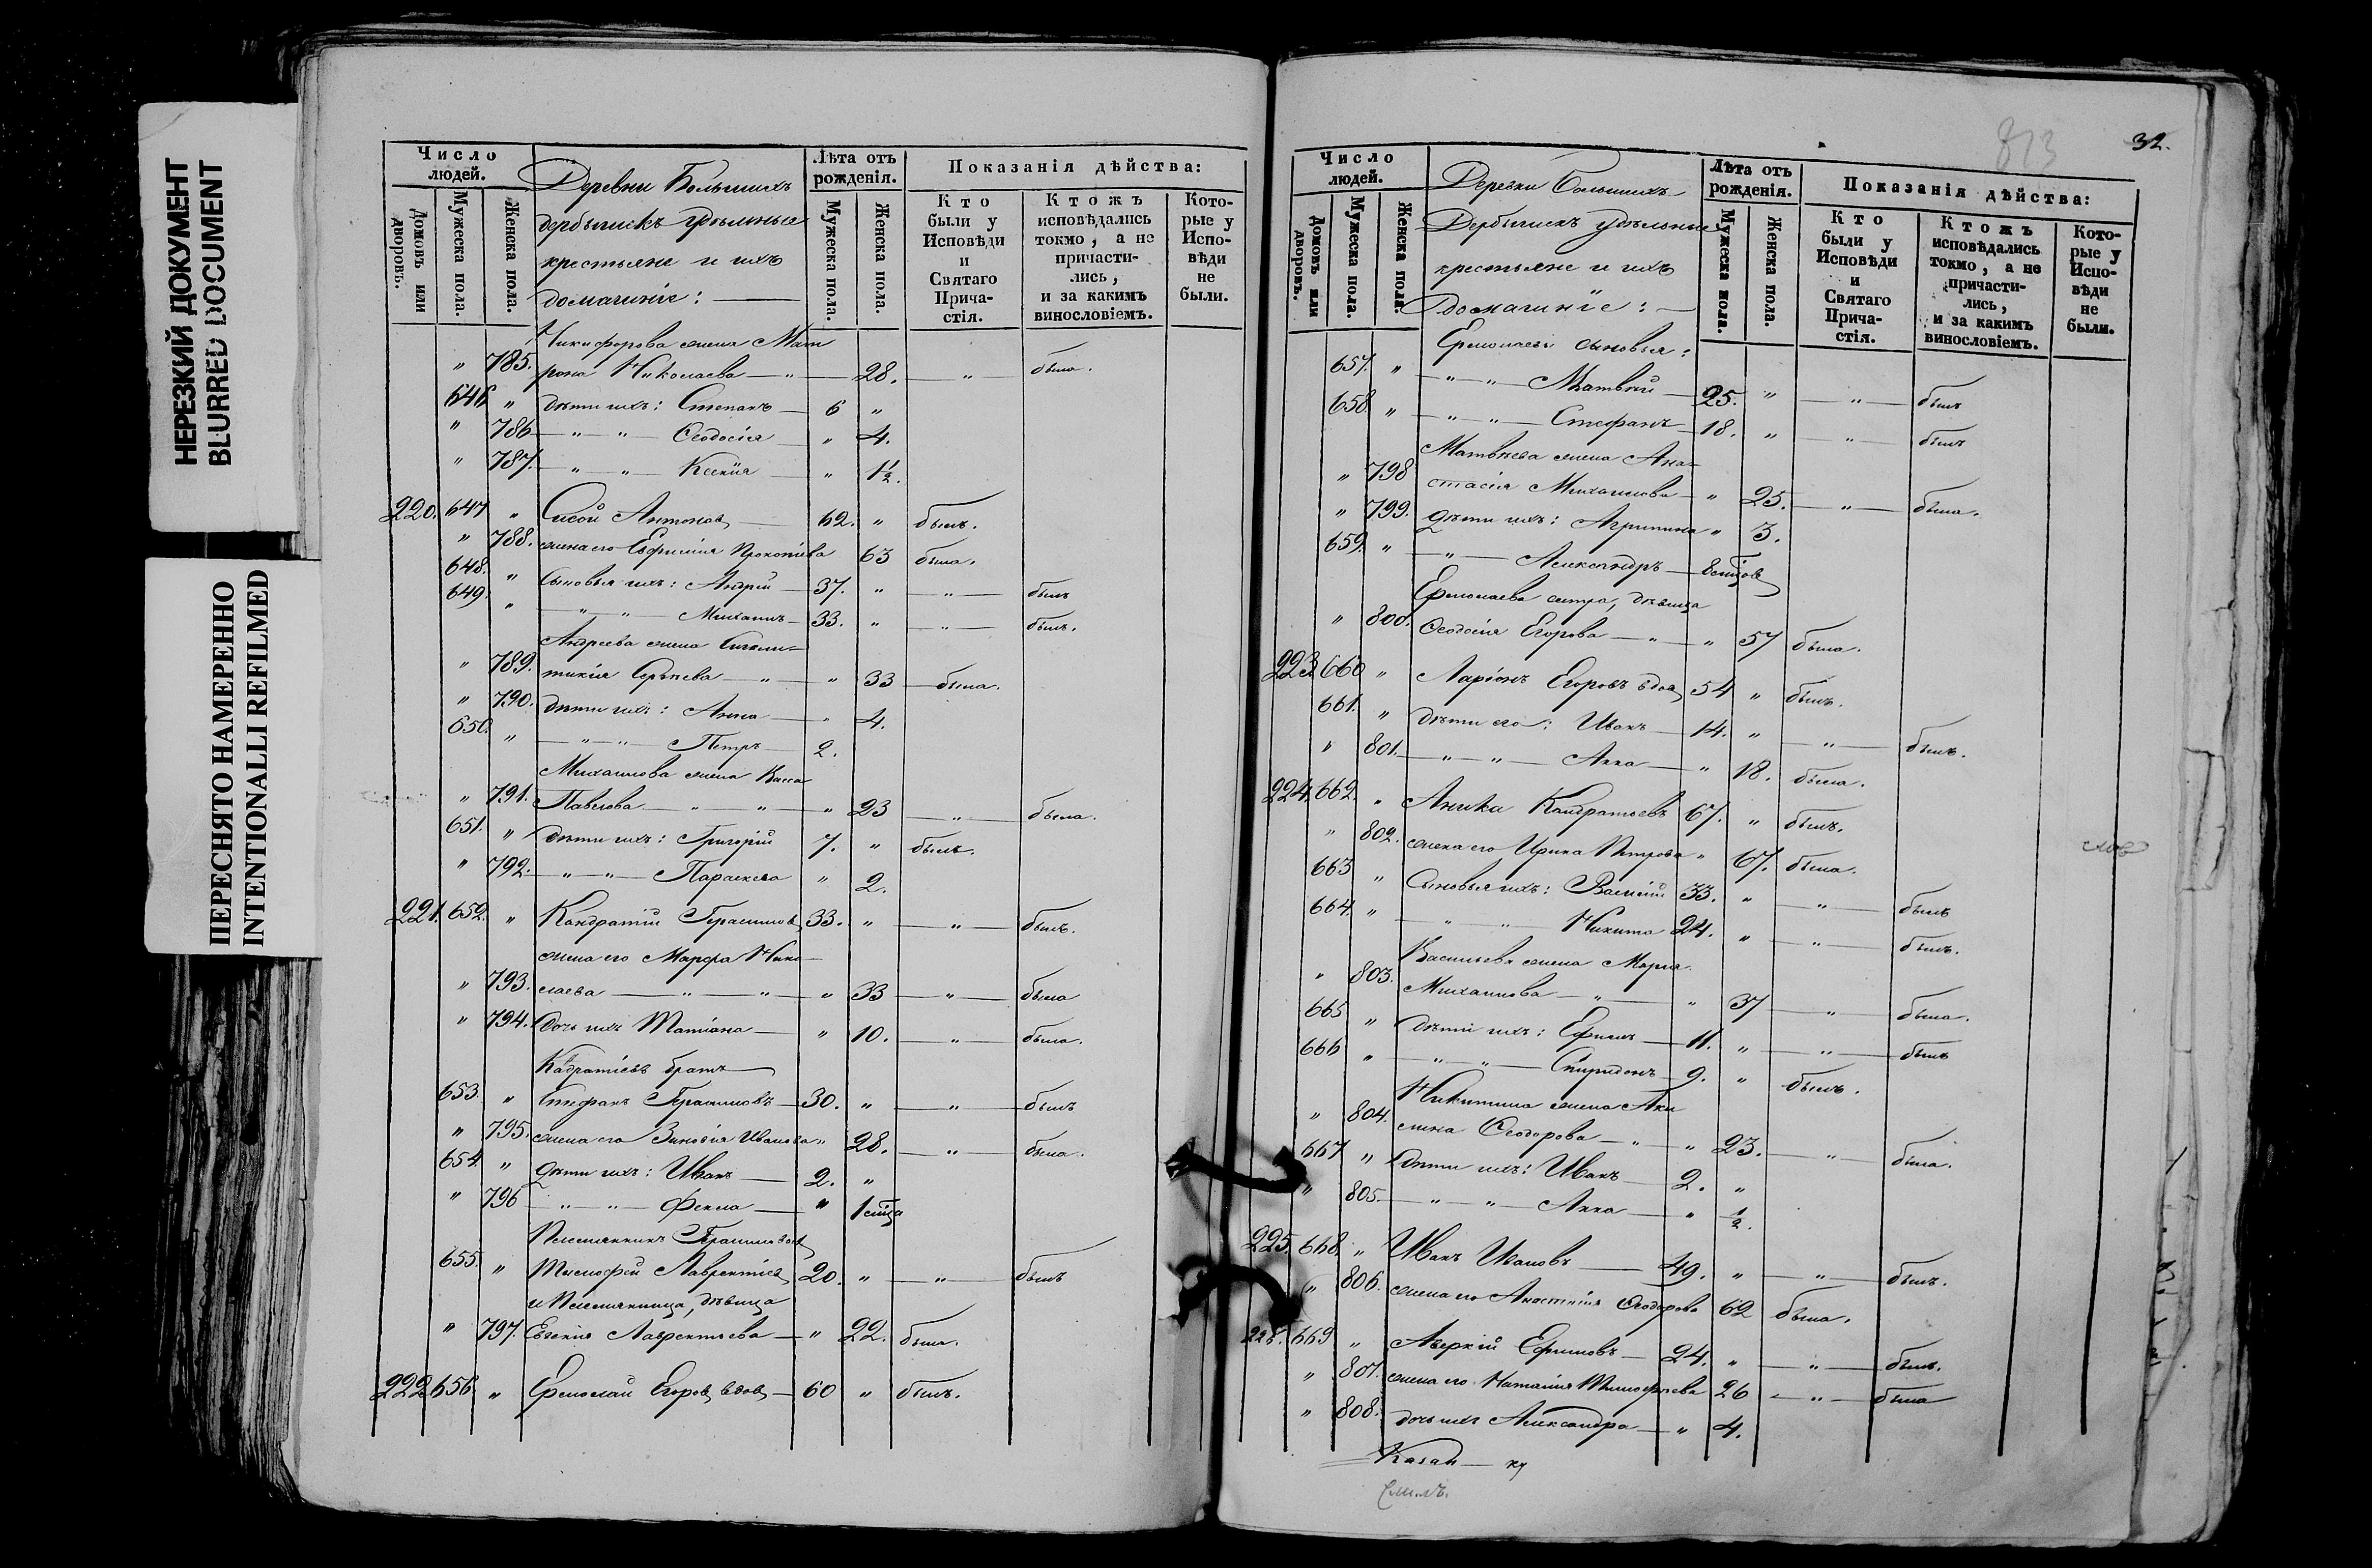 НЕРЕЗКИЙ ДОКУМЕНТ
BLURRED DOCUMENT
ПЕРЕСНЯТО НАМЕРЕННО
INTENTIONALLI REFILMED
Число людей.
Домовъ или дворовъ.
Мужеска пола.
Женска пола.
Деревни Большихъ
дербышкъ удѣльные
крестьяне и ихъ
домашніе:
Лѣта отъ рожденія.
Мужеска пола.
Женска пола.
Показанія дѣйства:
Кто были у Исповѣди и Святаго Причастія.
Ктожъ исповѣдались токмо, а не причастились, и за какимъ винословіемъ.
Которые у Исповѣди не были.
Никифорова жена Мат
" 785. рона Николаева — " — 28. — " — была.
646 " дѣти ихъ: Степанъ — 6 "
" 786 — " — " — Ѳеодосія " 4.
" 787. — " — " — Ксенія — " 1½.
220. 647 " Сисой Антонов 62. " былъ.
" 788. жена его Евфимія Прокопіева 63 была.
648. " Сыновья ихъ: Андрей — 37. " — " — былъ
649. " — " — " — Михаилъ — 33. " — " — былъ.
Андреева жена Синкли=
" 789. тикія Сергѣева — " — " 33 — была.
" 790. дѣти ихъ: Анна — " 4.
650. " — " — " — Петръ — 2.
Михаилова жена Васса
" 791. Павлова — " — " — " 23 — " — была.
651. " дѣти ихъ: Григорій 7. " былъ.
" 792. — " — " — Параскева " 2.
221. 652. " Кандратій Герасимов 33. " — " — былъ.
жена его Марфа Нико
" 793. лаева — " — " — " 33 — " — была
" 794. дочь ихъ Татіана — " 10. — " — была.
Кадратіевъ братъ
653. " Стефанъ Герасимовъ — 30. " — " — былъ
" 795. жена его Зиновія Иванова " 28. — " — была.
654. " дѣти ихъ: Иванъ — 2. "
" 796 — " — " — Фекла — " 1
Племянникъ Герасимов
655. " Тимофей Лаврентіев 20. " — " — былъ
и Племянница, дѣвица
" 797. Евгенія Лаврентьева — " 22. была.
222 656 " Ермолай Егоров вдов — 60 " былъ.
813
32.
Число людей.
Домовъ или дворовъ.
Мужеска пола.
Женска пола.
Деревни Большихъ
Дербышкъ удѣльные
крестьяне и ихъ
домашніе: —
Лѣта отъ рожденія.
Мужеска пола.
Женска пола.
Показанія дѣйства:
Кто были у Исповѣди и Святаго Причастія.
Ктожъ исповѣдались токмо, а не причастились, и за какимъ винословіемъ.
Которые у Исповѣди не были.
Ермолаевы сыновья:
657. " — " — " — Матвей — 25. " — " — былъ
658 " — " — " — Стефанъ — 18. " — " — былъ
Матвѣева жена Ана=
" 798 стасія Михаилова — " 25. — " — была.
" 799. дѣти ихъ: Агрипина " 3.
659. " — " — Александръ — 8
Ермолаева сестра, дѣвица
" 800. Ѳеодосія Егорова — " — " 57 была.
223 660 " Ларіонъ Егоровъ вдов 54 " былъ.
661. " дѣти его: Иванъ — 14. " — " — былъ.
" 801. — " — " — Анна — " 18. была.
224. 662. " Аника Кандратьевъ 67. " былъ.
" 802. жена его Ирина Петрова " 67. была.
663 " Сыновья ихъ: Василій 33. " — " — былъ
664. " — " — " — Никита 24. " — " — былъ.
Васильева жена Марья
" 803. Михаилова — " — " 37 — " — была.
665 " дѣти ихъ: Ефимъ — 11. " — " — былъ
666 " — " — " — Спиридонъ — 9. " былъ.
Никитина жена Аку
" 804. лина Ѳеодорова — " — " 23. — " — была.
667 " дѣти ихъ: Иванъ — 2. "
" 805. — " — " — Анна — " ½.
225. 668. " Иванъ Ивановъ — 49. " — " — былъ.
" 806. жена его Анастасія Ѳеодорова 62 была.
226. 669 " Аверкій Ефимовъ — 24. " — " — былъ.
" 807. жена его Наталія Тимофеева 26 — " — была
" 808. дочь ихъ Александра — " 4.